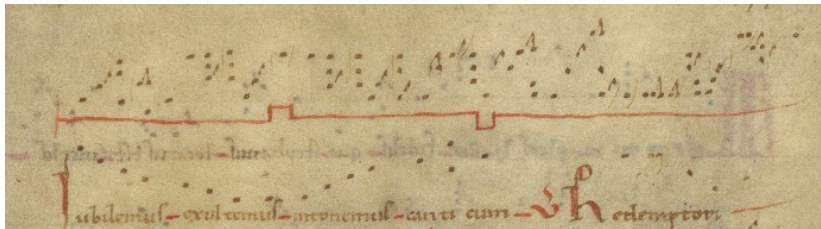 Iubilemus - exultemus - intonemus - canti cum - V Redemptori